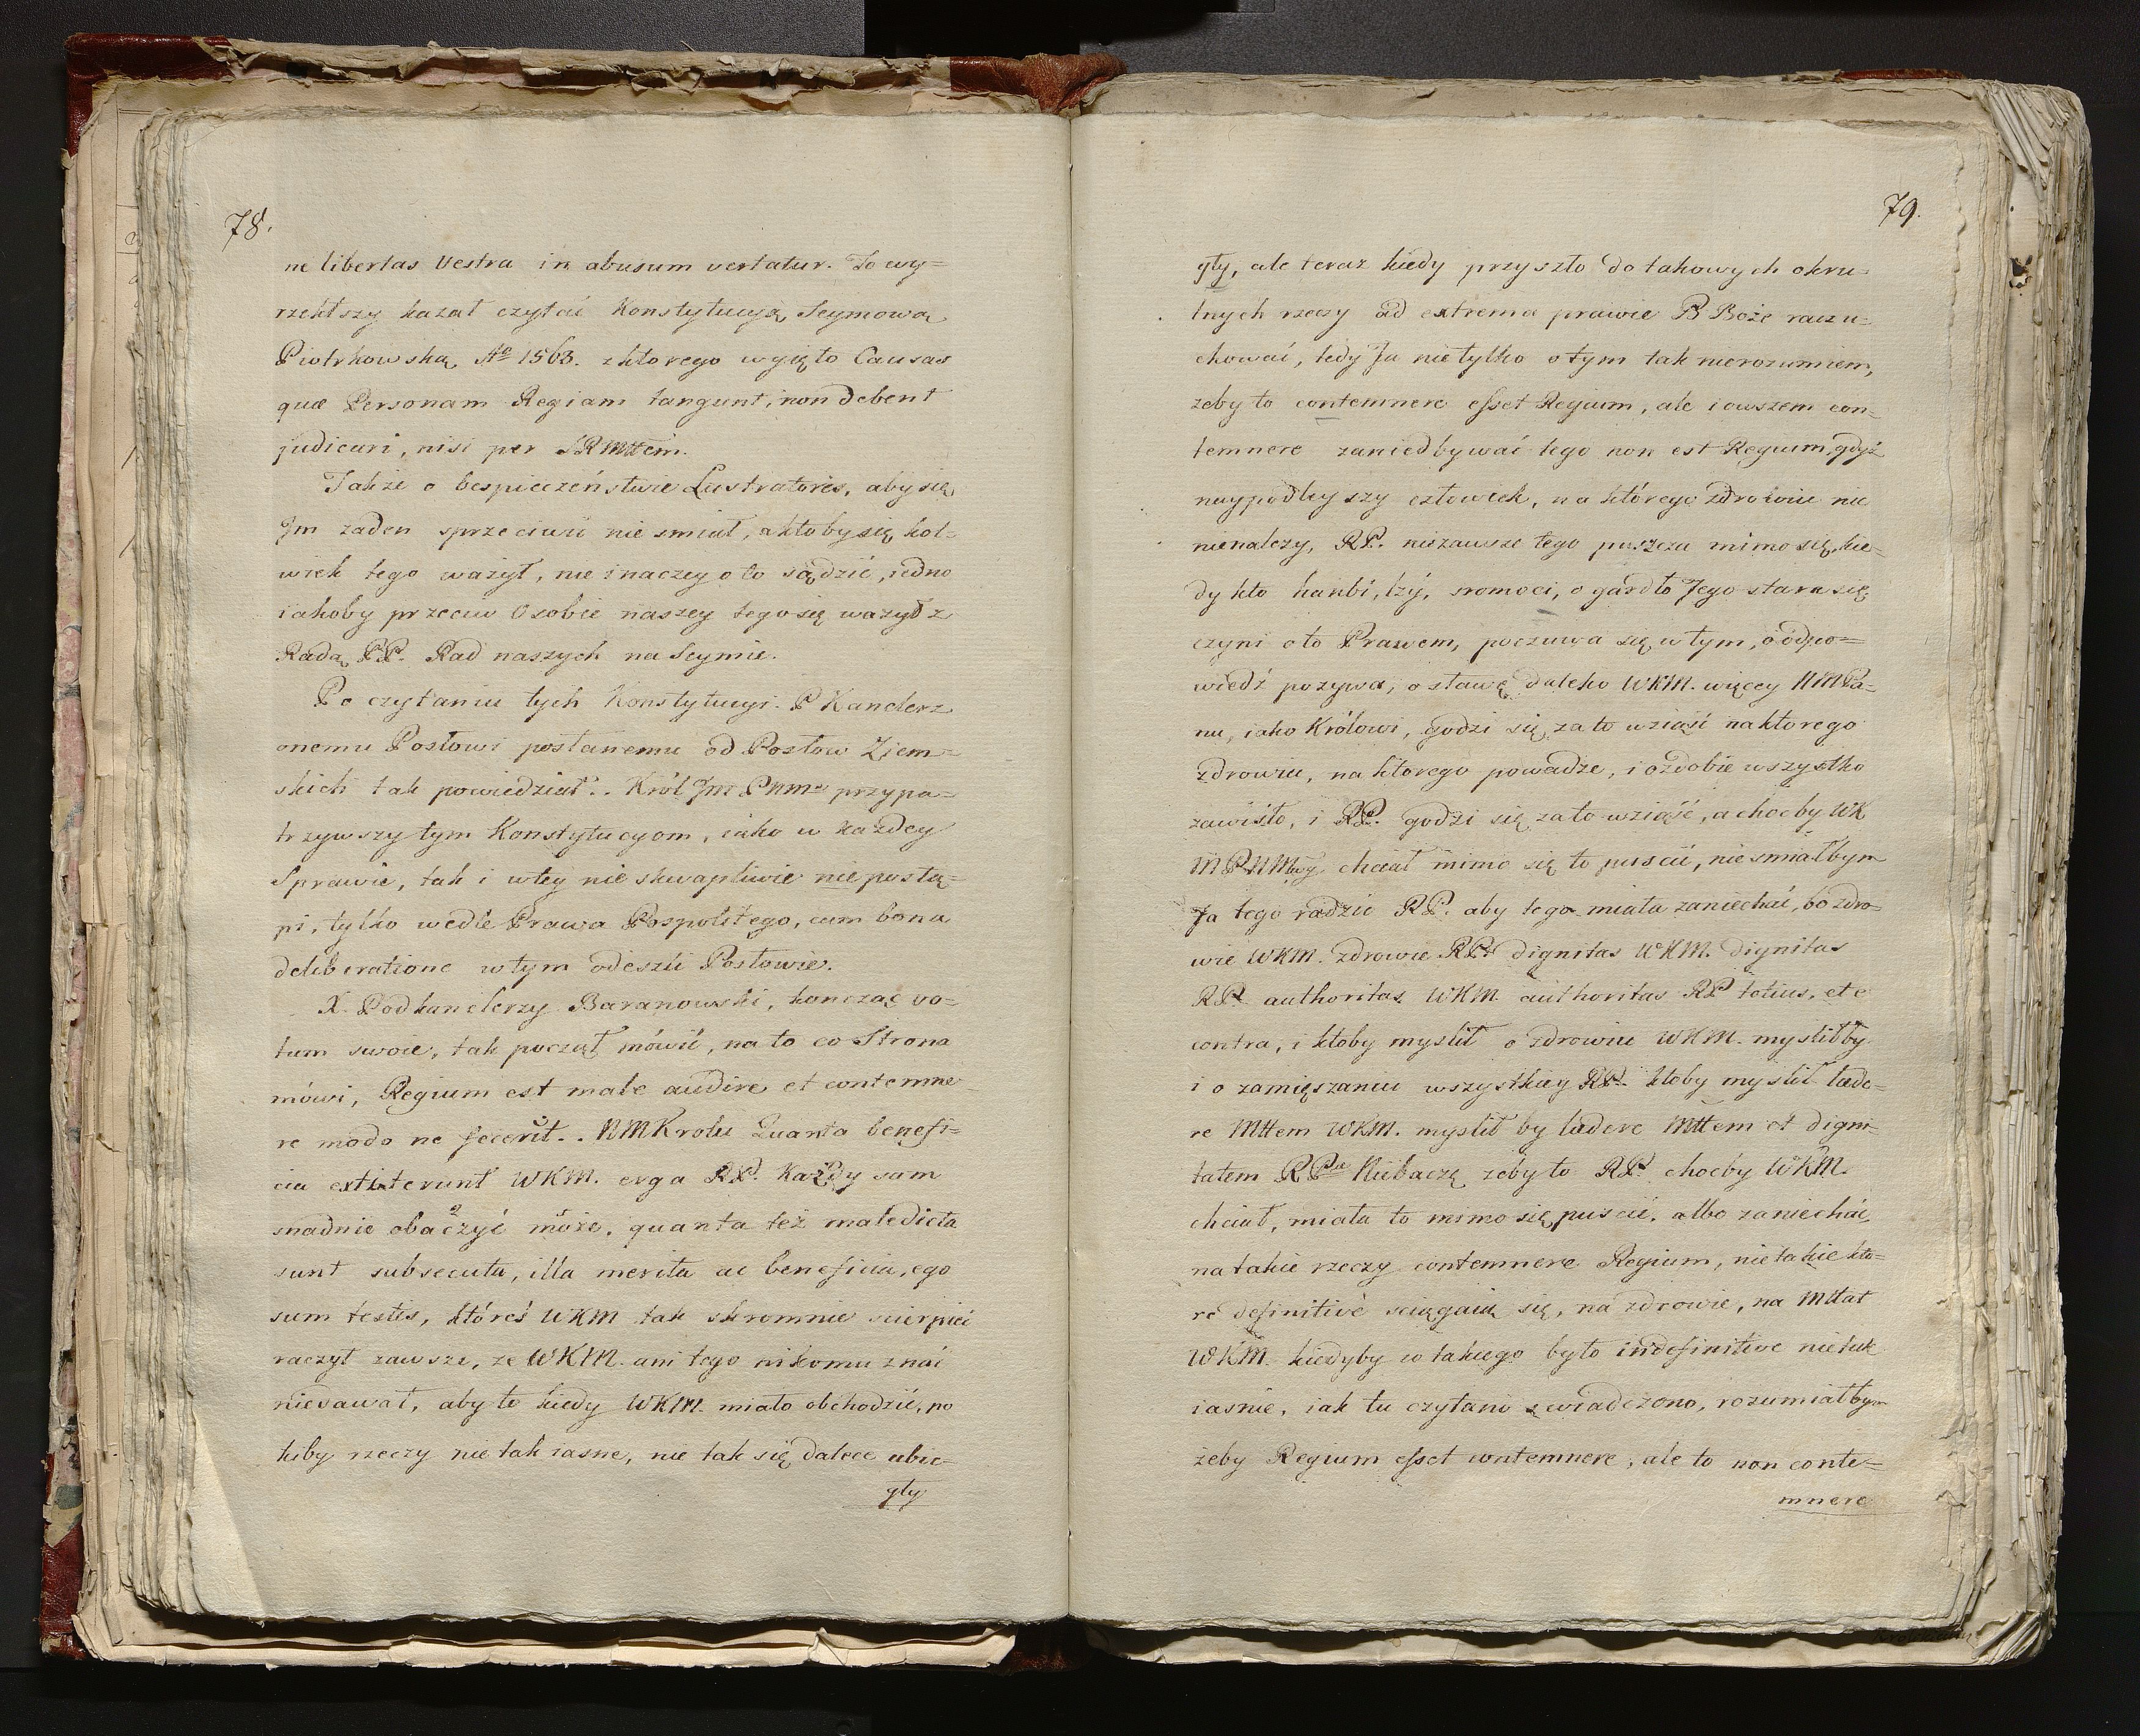 78.
ne libertas vestra in abusum vertatur. To wy=
rzekłszy kazał czytać Konstytucyą Seymową
Piotrkowską Aº 1563. z którego wyięto Causas
quæ Personam Regiam tangunt, non debent
judicari, nisi per SRMttem.
Także o bespieczeństwie Lustratores, aby się
Im żaden sprzeciwić nie smiał, a ktoby się kol=
wiek tego ważył, nie inaczey o to sądzić, iedno
iakoby przeciw Osobie naszey tego się ważył z
Radą PP. Rad naszych na Seymie.
Po czytaniu tych Konstytucyi. P Kanclerz
onemu Posłowi posłanemu od Posłow Ziem=
skich tak powiedział:. Król Jm PNM przypa=
trzywszy tym Konstytucyom, iako w każdey
Sprawie, tak i w tey nie skwapliwie nie postą=
pi, tylko wedle Prawa Pospolitego, cum bona
deliberatione w tym odeszli Posłowie.
X. Podkanclerzy Baranowski, koncząc vo=
tum swoie, tak począł mówić, na to co Strona
mówi, Regium est male audire et contemne
re modo ne fecerit.. NMKrolu Quanta benefi=
cia extiterunt WKM. erga RP. Każdy sam
snadnie obaczyć może, quanta też maledicta
sunt subsecuta, illa merita ac beneficia, ego
sum testis, któreś WKM tak skromnie cierpieć
raczył zawsze, że WKM. ani tego nikomu znać
niedawał, aby to kiedy WKM. miało obchodzić, po
kiby rzeczy nie tak iasne, nie tak się dalece ubie=
gły
79.
gły, ale teraz kiedy przyszło do takowych okru=
tnych rzeczy ad extrema prawie P Boże racz u=
chować, tedy Ja nie tylko o tym tak nierozumiem,
żeby to contemnere esset Regium, ale i owszem con=
temnere zaniedbywać tego non est Regium, gdyż
naypodleyszy człowiek, na którego zdrowiu nic
nienależy, RP. niezawsze tego puszcza mimo się, kie=
dy kto hańbi, lży, sromoci, o gardło Jego stara się
czyni o to Prawem, poczuwa się w tym, o odpo=
wiedź pozywa, o sławę daleko WKM. więcey NMPa=
nu, iako Królowi, godzi się za to wziąść na ktorego
zdrowiu, na ktorego powadze, i ozdobie wszystko
zawisło, i RP. godzi się za to wziąść, a choćby WK
M PNMwy chciał mimo się to puscić, nie smiałbym
Ja tego radzić RP. aby tego miała zaniechać, bo zdro=
wie WKM. zdrowie RP. dignitas WKM. dignitas
RP. authoritas WKM. authoritas RP totius, et e
contra, i ktoby myslił o zdrowiu WKM. mysliłby
i o zamięszaniu wszystkiey RP. ktoby myslił læde=
re Mttem WKM. myslił by lædere Mttem et digni=
tatem RPcæ Niebaczę żeby to RP. choćby WKM.
chciał, miała to mimo się puscić, albo zaniechać,
na takie rzeczy contemnere Regium, nie takie kto=
re definitivè sciągaią się, na zdrowie, na Mttat
WKM. kiedyby co takiego było indefinitive nie tak
iasnie, iak tu czytano swiadczono, rozumiałbym
żeby Regium esset contemnere, ale to non conte=
mnere